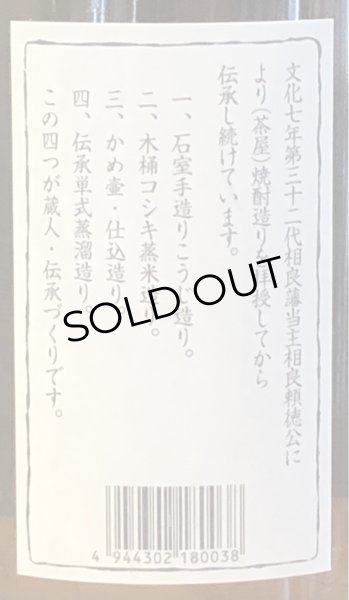 文化七年第三十二代相良藩当主相良頼徳公に
より(茶屋)焼酎造りを拝授してから
伝承し続けています。
一、石室手造りこうじ造り。
二、木桶コシキ蒸米造り。
三、かめ壷・仕込造り。
四、伝承単式蒸溜造り。
この四つが蔵人・伝承づくりです。
SOLD OUT
4 944302 180038